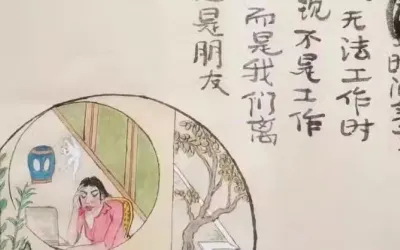 无法工作时
现不是工作
而是我们离
是朋友